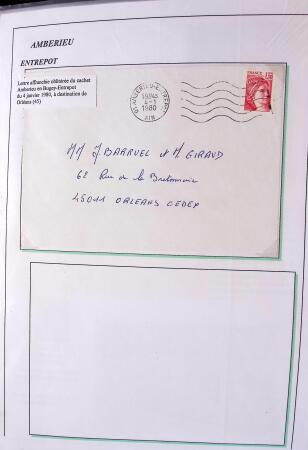 AMBERIEU
ENTREPOT
Lettre affranchie oblitérée du cachet
Amberieu en Bugey-Entrepot
du 4 janvier 1980, à destination de
Orléans (45)
1980
AIN
MM J BARRUEL et H. GIRAUD
62 Rue de la Bretonnerie
45011 ORLEANS CEDEX